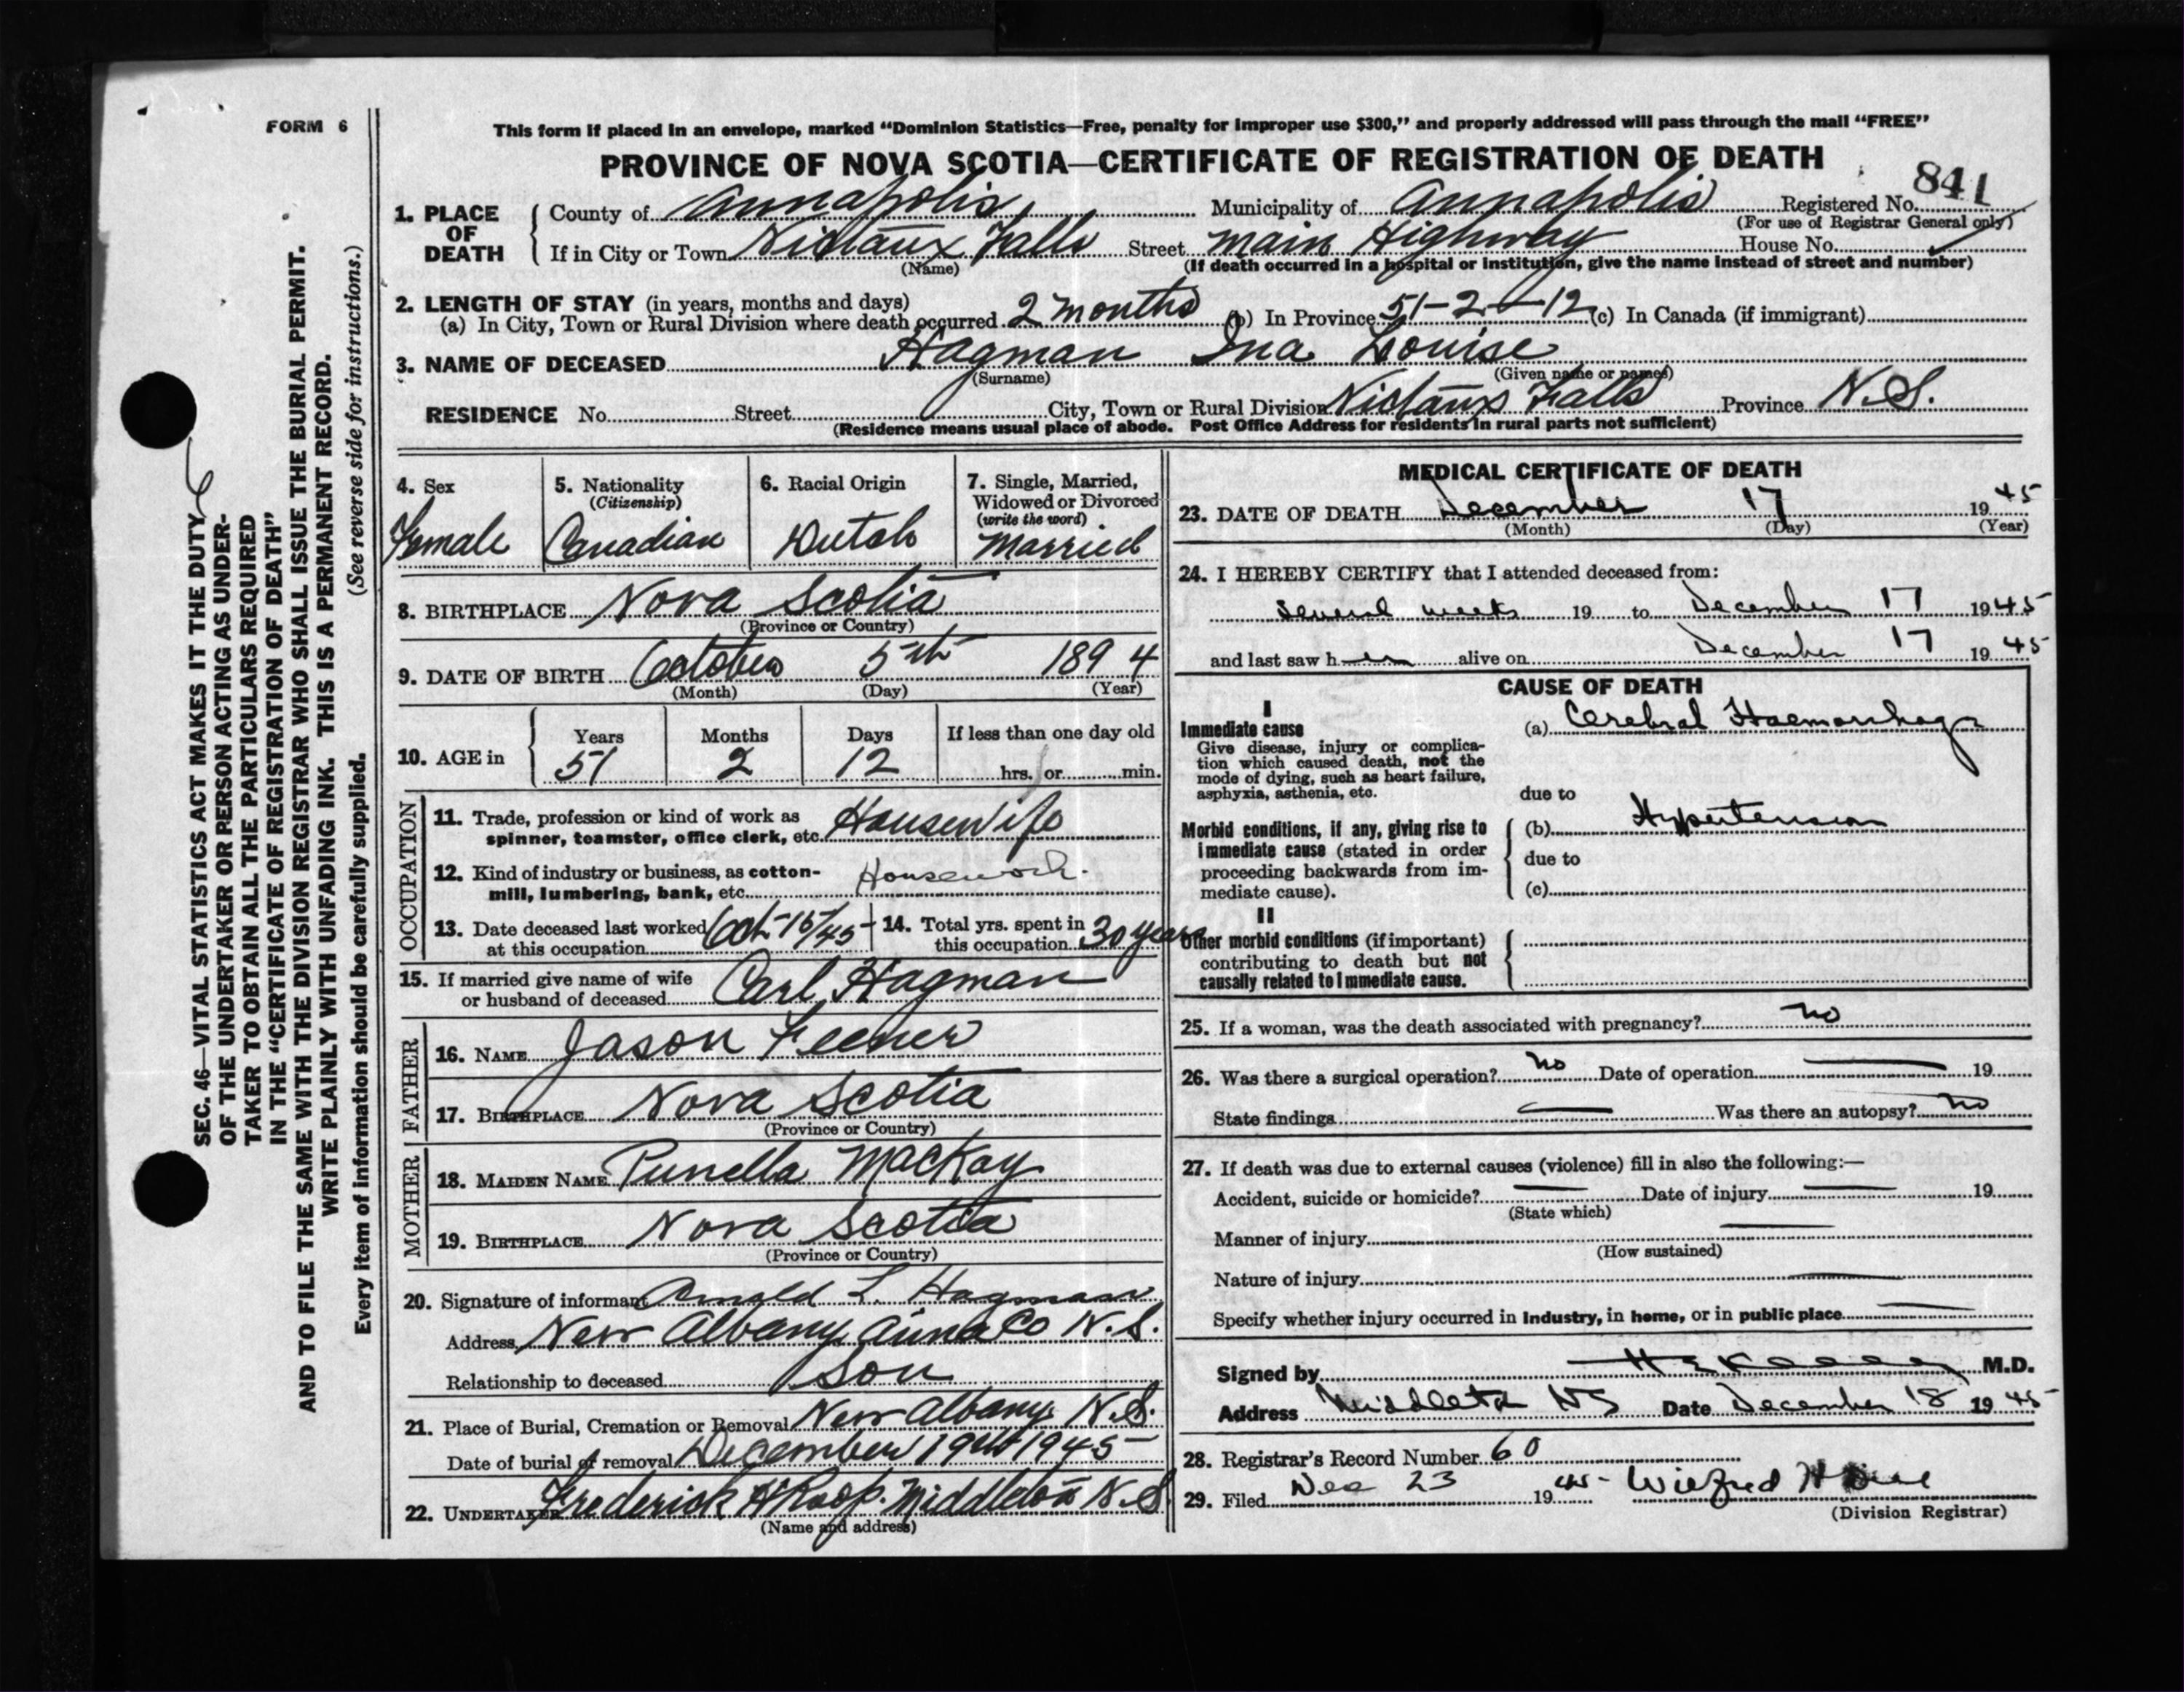 FORM 6
This form if placed in an envelope, marked “Dominion Statistics—Free, penalty for improper use $300,” and properly addressed will pass through the mail “FREE”
PROVINCE OF NOVA SCOTIA—CERTIFICATE OF REGISTRATION OF DEATH
841
1. PLACE OF DEATH
County of Annapolis Municipality of Annapolis Registered No.
(For use of Registrar General only)
If in City or Town Nictaux Falls Street Main Highway House No.
(Name)
(If death occurred in a hospital or institution, give the name instead of street and number)
2. LENGTH OF STAY (in years, months and days)
(a) In City, Town or Rural Division where death occurred 2 months (b) In Province 51-2-12 (c) In Canada (if immigrant)
3. NAME OF DECEASED Hagman Ina Louise
(Surname) (Given name or names)
RESIDENCE No. Street City, Town or Rural Division Nictaux Falls Province N.S.
(Residence means usual place of abode. Post Office Address for residents in rural parts not sufficient)
4. Sex
Female
5. Nationality
(Citizenship)
Canadian
6. Racial Origin
Dutch
7. Single, Married,
Widowed or Divorced
(write the word)
Married
8. BIRTHPLACE Nova Scotia
(Province or Country)
9. DATE OF BIRTH October 5th 1894
(Month) (Day) (Year)
10. AGE in
Years Months Days If less than one day old
51 2 12 hrs. or min.
OCCUPATION
11. Trade, profession or kind of work as
spinner, teamster, office clerk, etc. Housewife
12. Kind of industry or business, as cotton-
mill, lumbering, bank, etc. Housework.
13. Date deceased last worked
at this occupation Oct-15/45
14. Total yrs. spent in
this occupation 30 years
15. If married give name of wife
or husband of deceased Carl Hagman
FATHER
16. NAME Jason Feener
17. BIRTHPLACE Nova Scotia
(Province or Country)
MOTHER
18. MAIDEN NAME Punella MacKay
19. BIRTHPLACE Nova Scotia
(Province or Country)
20. Signature of informant Arnold L. Hagman
Address New Albany Anna Co N.S.
Relationship to deceased Son
21. Place of Burial, Cremation or Removal New Albany N.S.
Date of burial or removal December 19th 1945
22. UNDERTAKER Frederick H Roop. Middleton N.S.
(Name and address)
MEDICAL CERTIFICATE OF DEATH
23. DATE OF DEATH December 17 1945
(Month) (Day) (Year)
24. I HEREBY CERTIFY that I attended deceased from:
several weeks 19 to December 17 1945
and last saw her alive on December 17 1945
CAUSE OF DEATH
I
Immediate cause
Give disease, injury or complica-
tion which caused death, not the
mode of dying, such as heart failure,
asphyxia, asthenia, etc.
(a) Cerebral Haemorrhage
due to
Morbid conditions, if any, giving rise to
immediate cause (stated in order
proceeding backwards from im-
mediate cause).
(b) Hypertension
due to
(c)
II
Other morbid conditions (if important)
contributing to death but not
causally related to immediate cause.
25. If a woman, was the death associated with pregnancy? no
26. Was there a surgical operation? no Date of operation — 19
State findings — Was there an autopsy? no
27. If death was due to external causes (violence) fill in also the following:—
Accident, suicide or homicide? — Date of injury — 19
(State which)
Manner of injury —
(How sustained)
Nature of injury —
Specify whether injury occurred in industry, in home, or in public place —
Signed by M.D.
Address Middleton NS Date December 18 1945
28. Registrar's Record Number 60
29. Filed Dec 23 1945 Wilfred H
(Division Registrar)
SEC. 46—VITAL STATISTICS ACT MAKES IT THE DUTY
OF THE UNDERTAKER OR PERSON ACTING AS UNDER-
TAKER TO OBTAIN ALL THE PARTICULARS REQUIRED
IN THE “CERTIFICATE OF REGISTRATION OF DEATH”
AND TO FILE THE SAME WITH THE DIVISION REGISTRAR WHO SHALL ISSUE THE BURIAL PERMIT.
WRITE PLAINLY WITH UNFADING INK. THIS IS A PERMANENT RECORD.
(See reverse side for instructions.)
Every item of information should be carefully supplied.